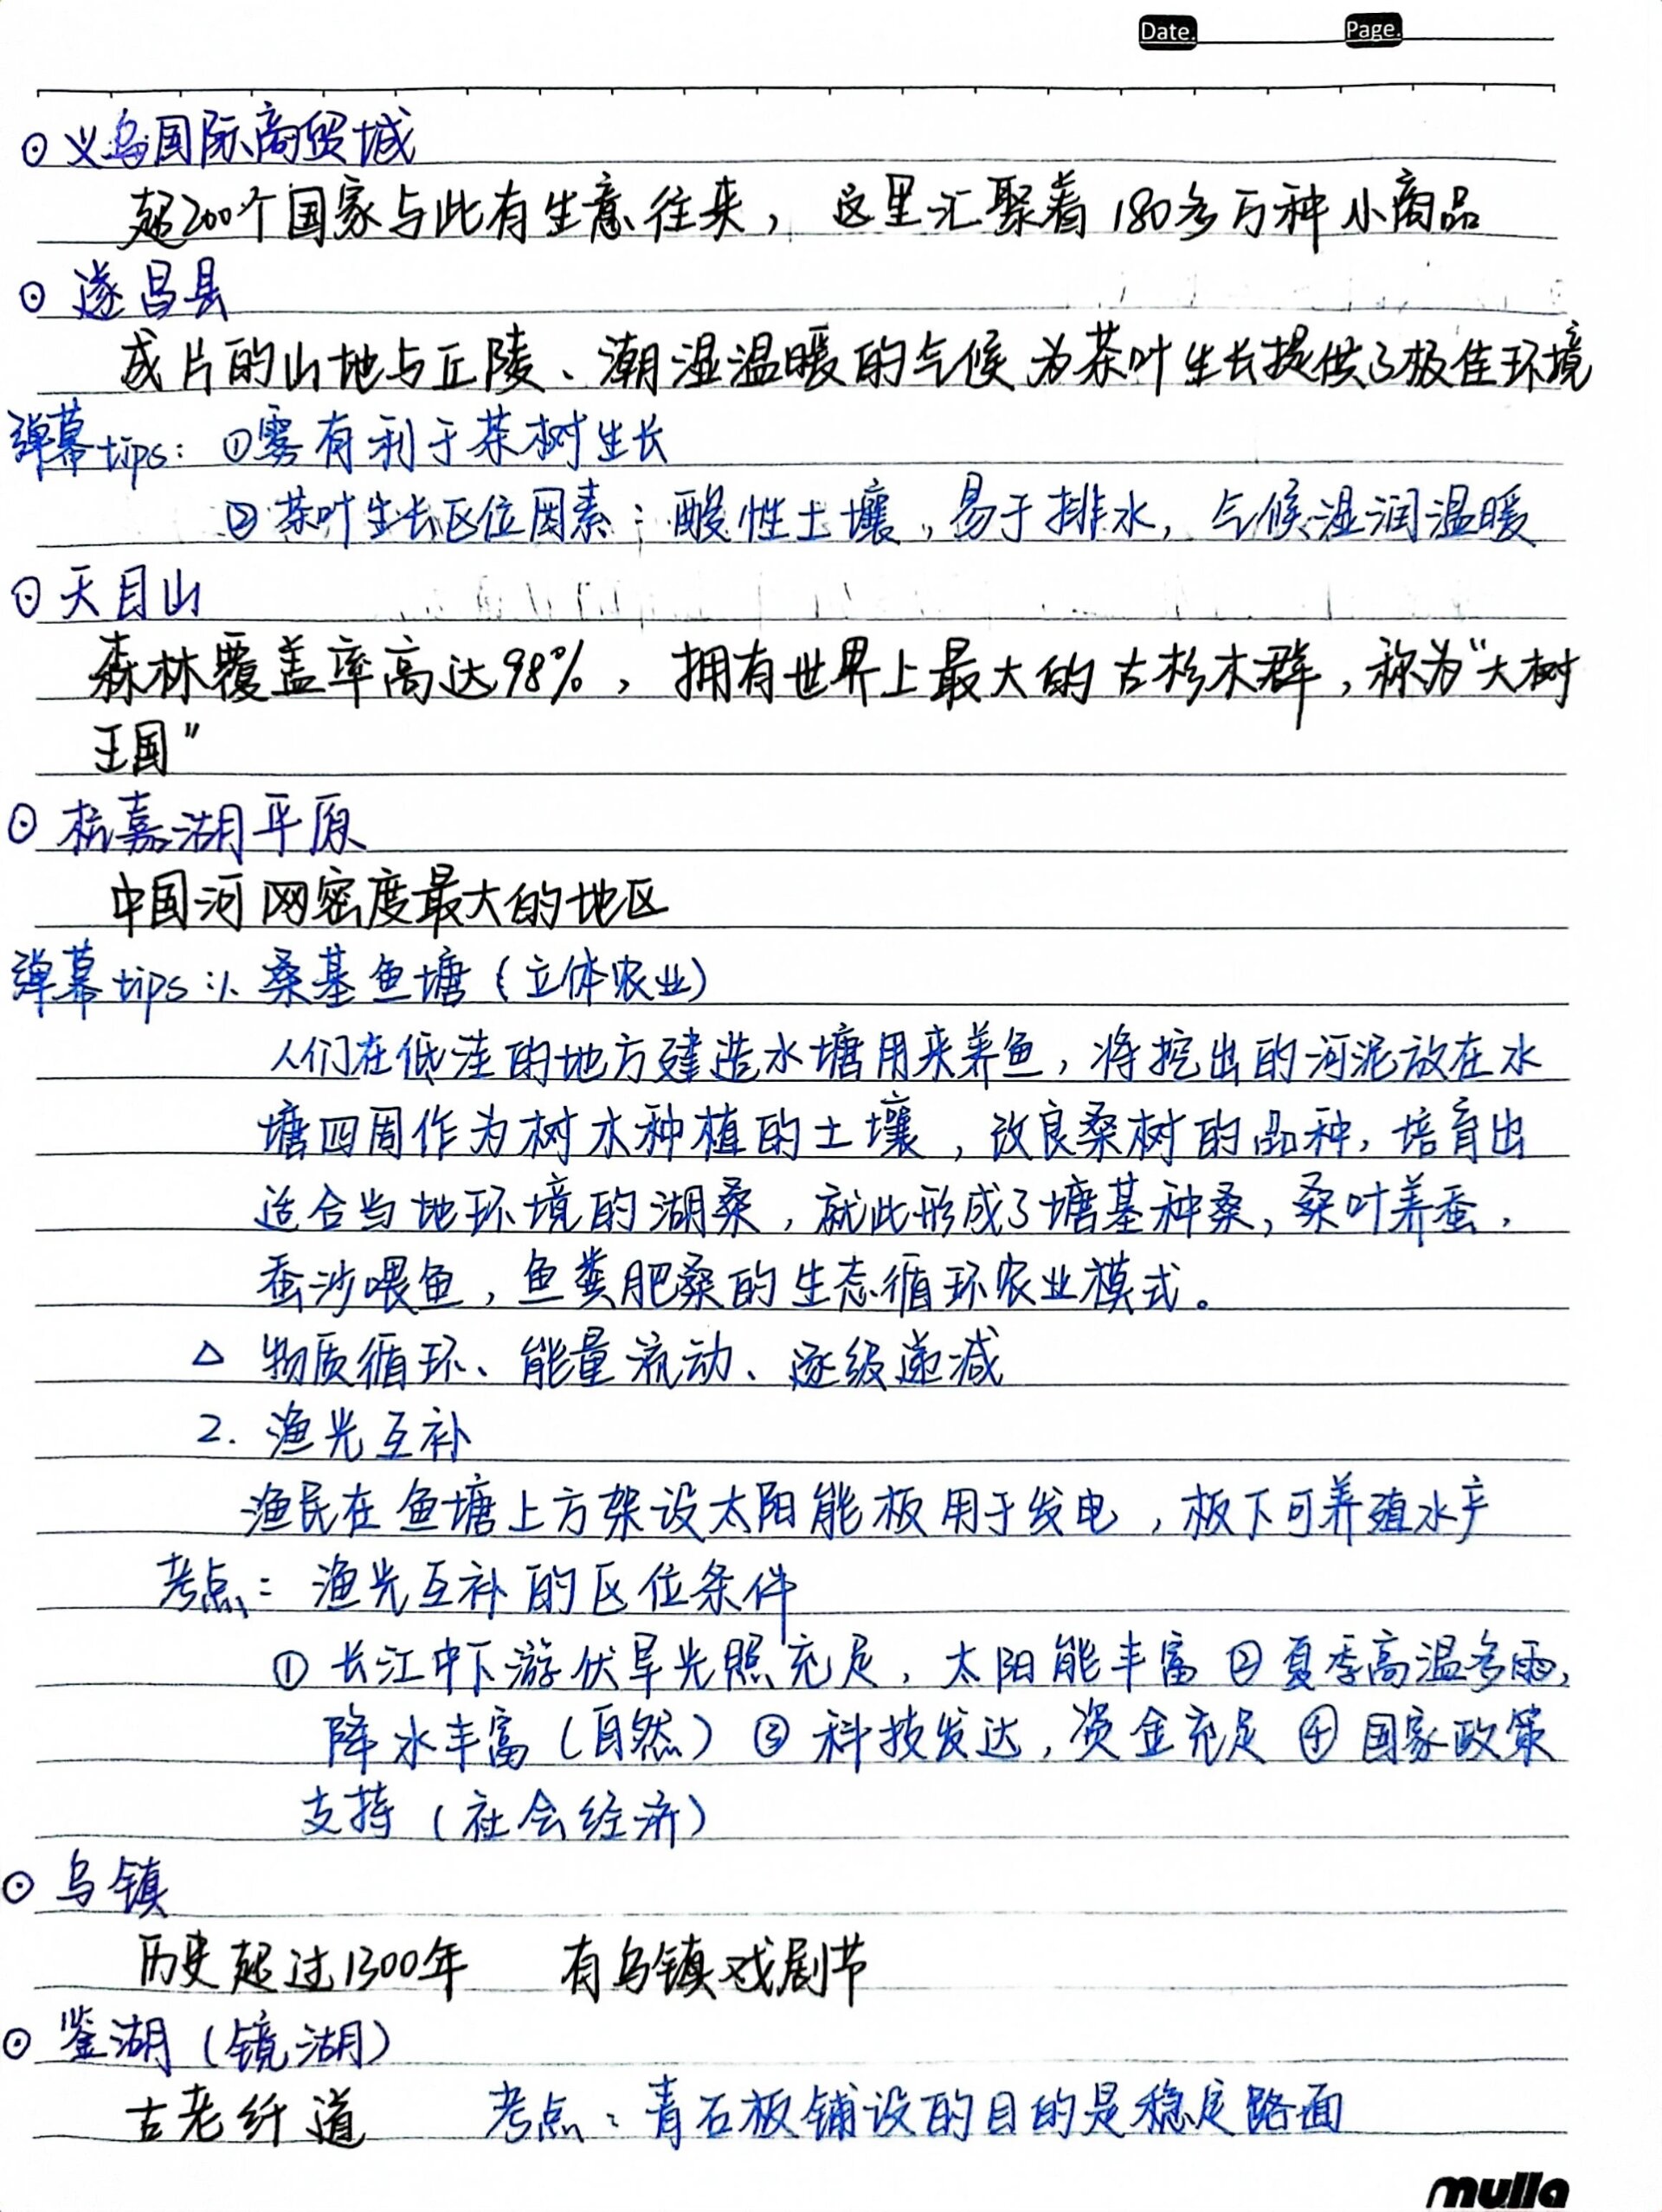 Date. Page.
⊙ 义乌国际商贸城
超200个国家与此有生意往来，这里汇聚着180多万种小商品
⊙ 遂昌县
成片的山地与丘陵、潮湿温暖的气候为茶叶生长提供了极佳环境
弹幕tips: ①雾有利于茶树生长
②茶叶生长区位因素：酸性土壤，易于排水，气候湿润温暖
⊙ 天目山
森林覆盖率高达98%，拥有世界上最大的古杉木群，称为“大树
王国”
⊙ 杭嘉湖平原
中国河网密度最大的地区
弹幕tips:1. 桑基鱼塘（立体农业）
人们在低洼的地方建造水塘用来养鱼，将挖出的河泥放在水
塘四周作为树木种植的土壤，改良桑树的品种，培育出
适合当地环境的湖桑，就此形成了塘基种桑，桑叶养蚕，
蚕沙喂鱼，鱼粪肥桑的生态循环农业模式。
△ 物质循环、能量流动、逐级递减
2. 渔光互补
渔民在鱼塘上方架设太阳能板用于发电，板下可养殖水产
考点：渔光互补的区位条件
① 长江中下游伏旱光照充足，太阳能丰富 ② 夏季高温多雨，
降水丰富（自然）③ 科技发达，资金充足 ④ 国家政策
支持（社会经济）
⊙ 乌镇
历史超过1300年 有乌镇戏剧节
⊙ 鉴湖（镜湖）
古老纤道 考点：青石板铺设的目的是稳定路面
mulla